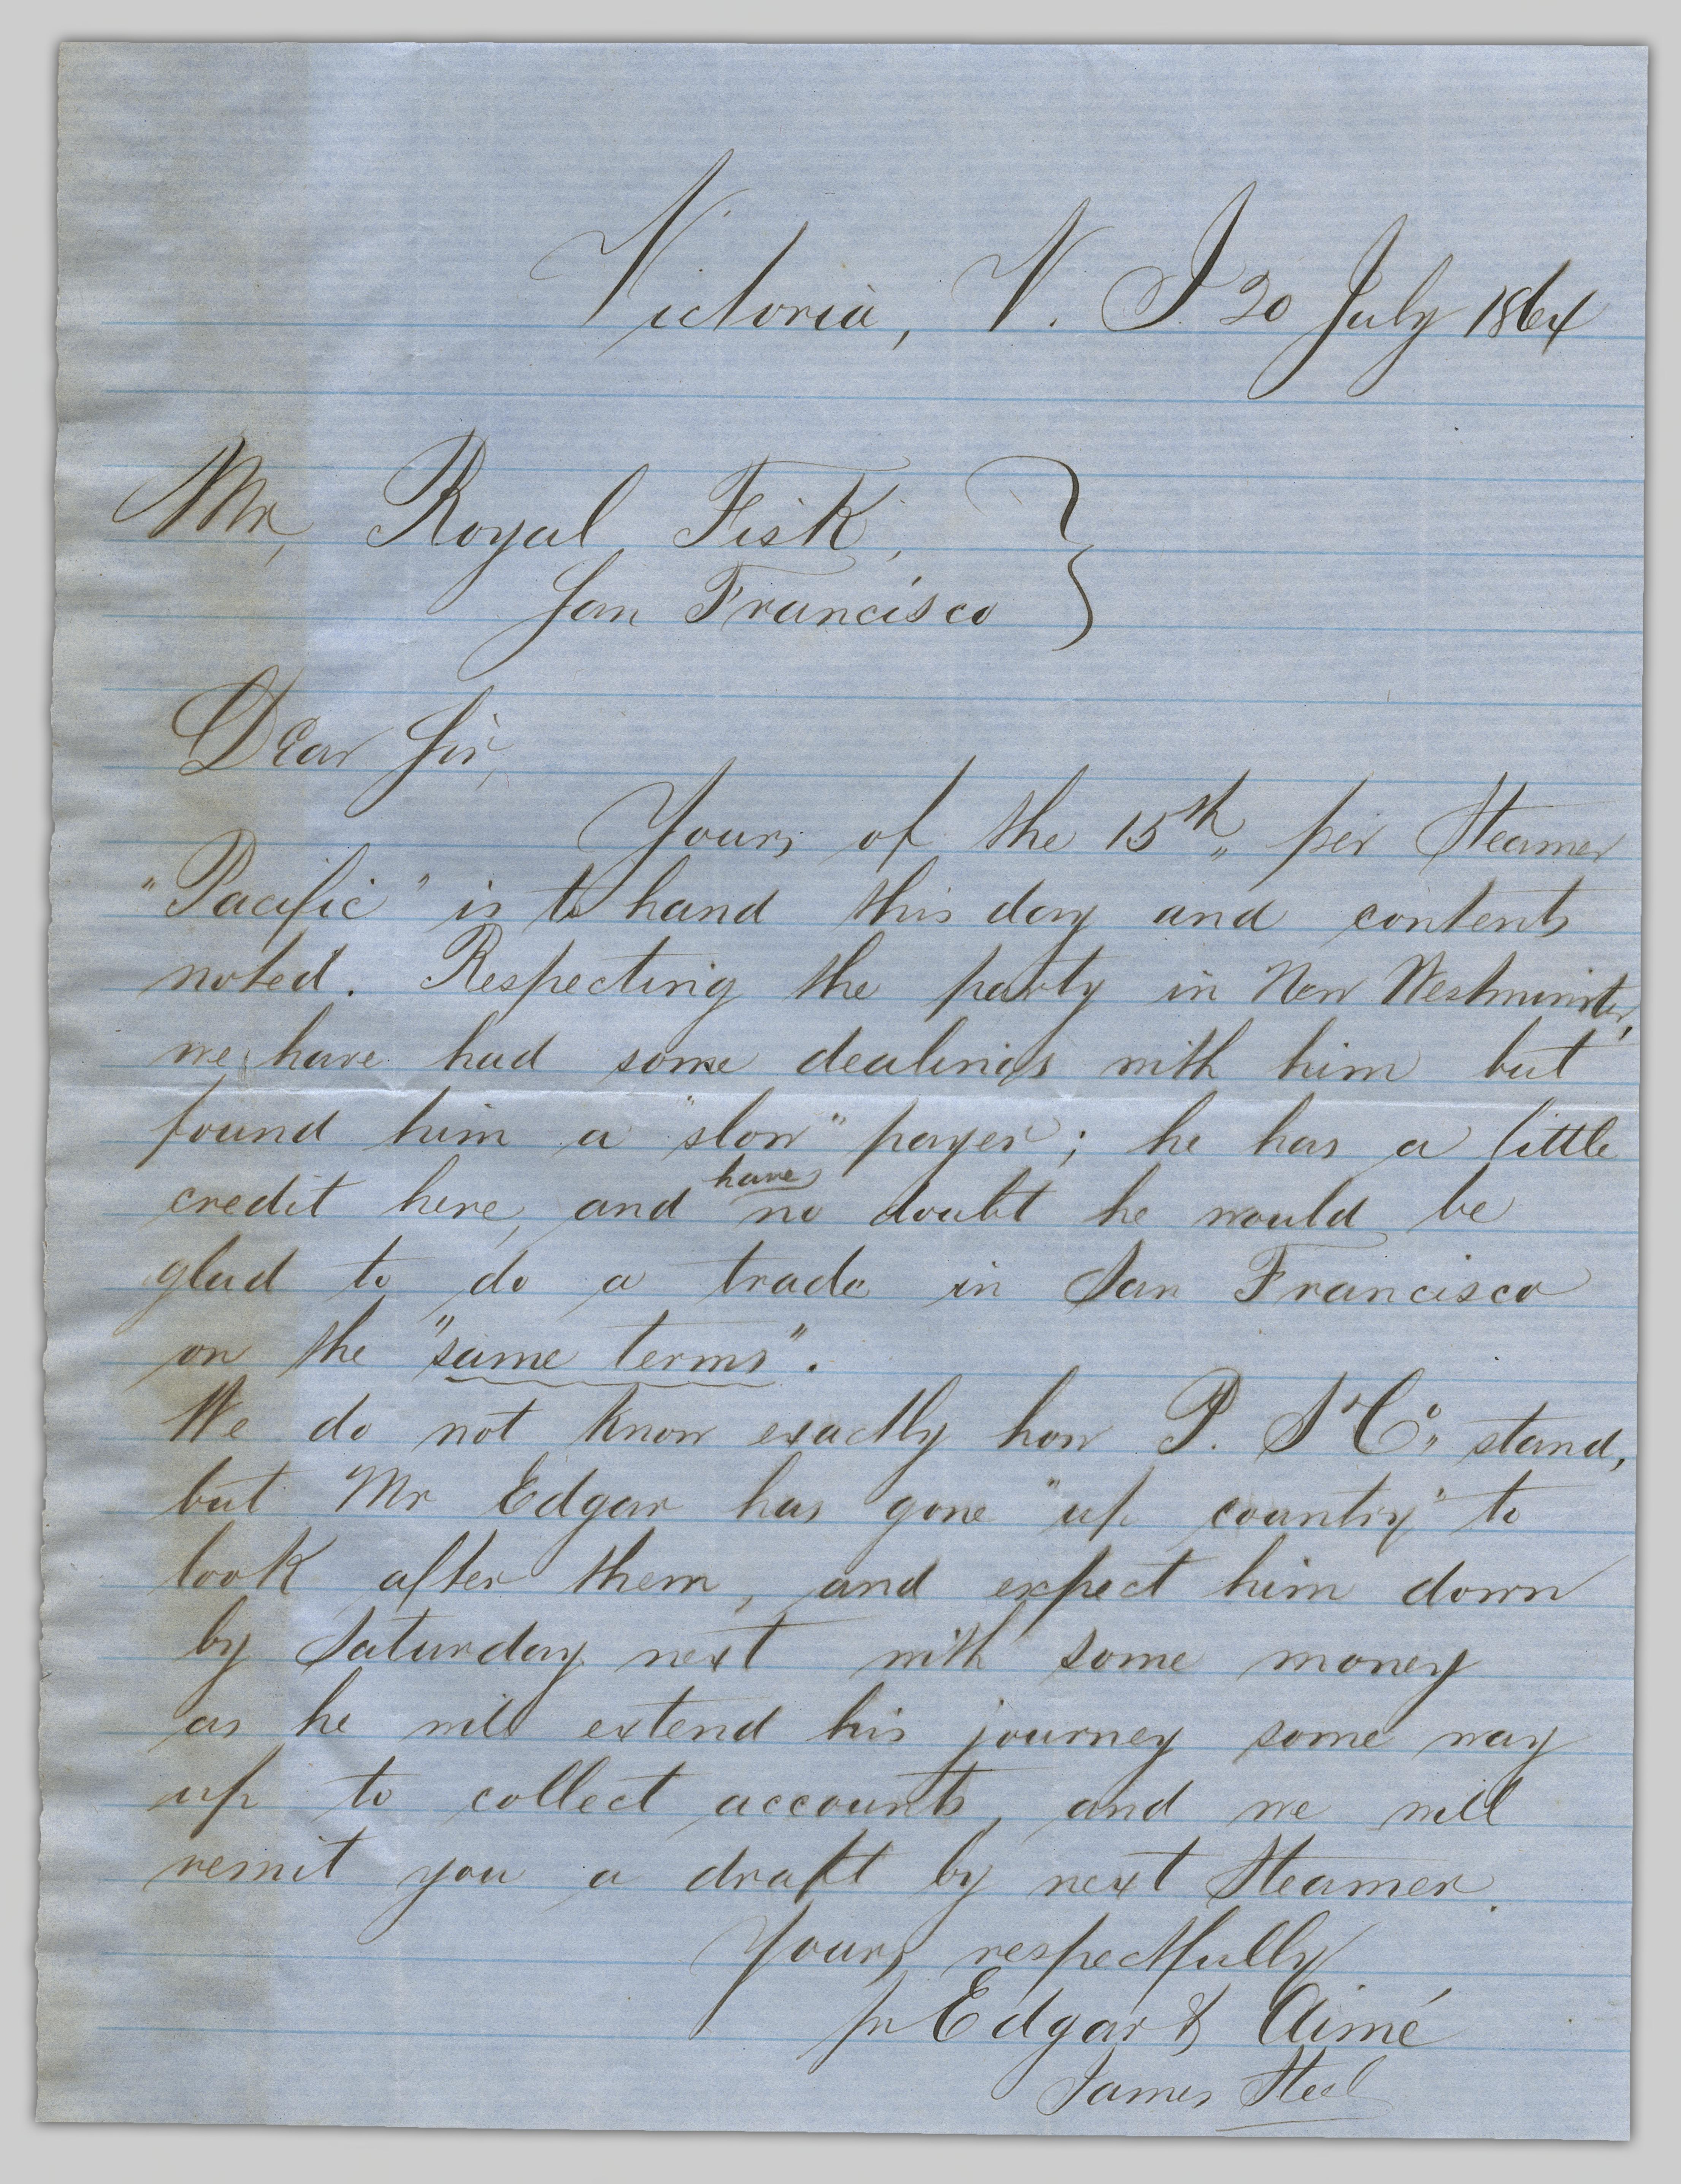 Victoria, V. I. 20 July 1864
Mr, Royal Fisk,
San Francisco
Dear Sir,
Yours of the 15th,, per Steamer
"Pacific" is to hand this day and contents
noted. Respecting the party in New Westminster,
we have had some dealings with him but
found him a "slow" payer; he has a little
credit here, and have no doubt he would be
glad to do a trade in San Francisco
on the "same terms".
We do not know exactly how P. & Co,, stand,
but Mr Edgar has gone "up country" to
look after them, and expect him down
by Saturday next with some money
as he will extend his journey some way
up to collect accounts, and we will
remit you a draft by next Steamer.
Yours respectfully
pr Edgar & Aimé
James Steel